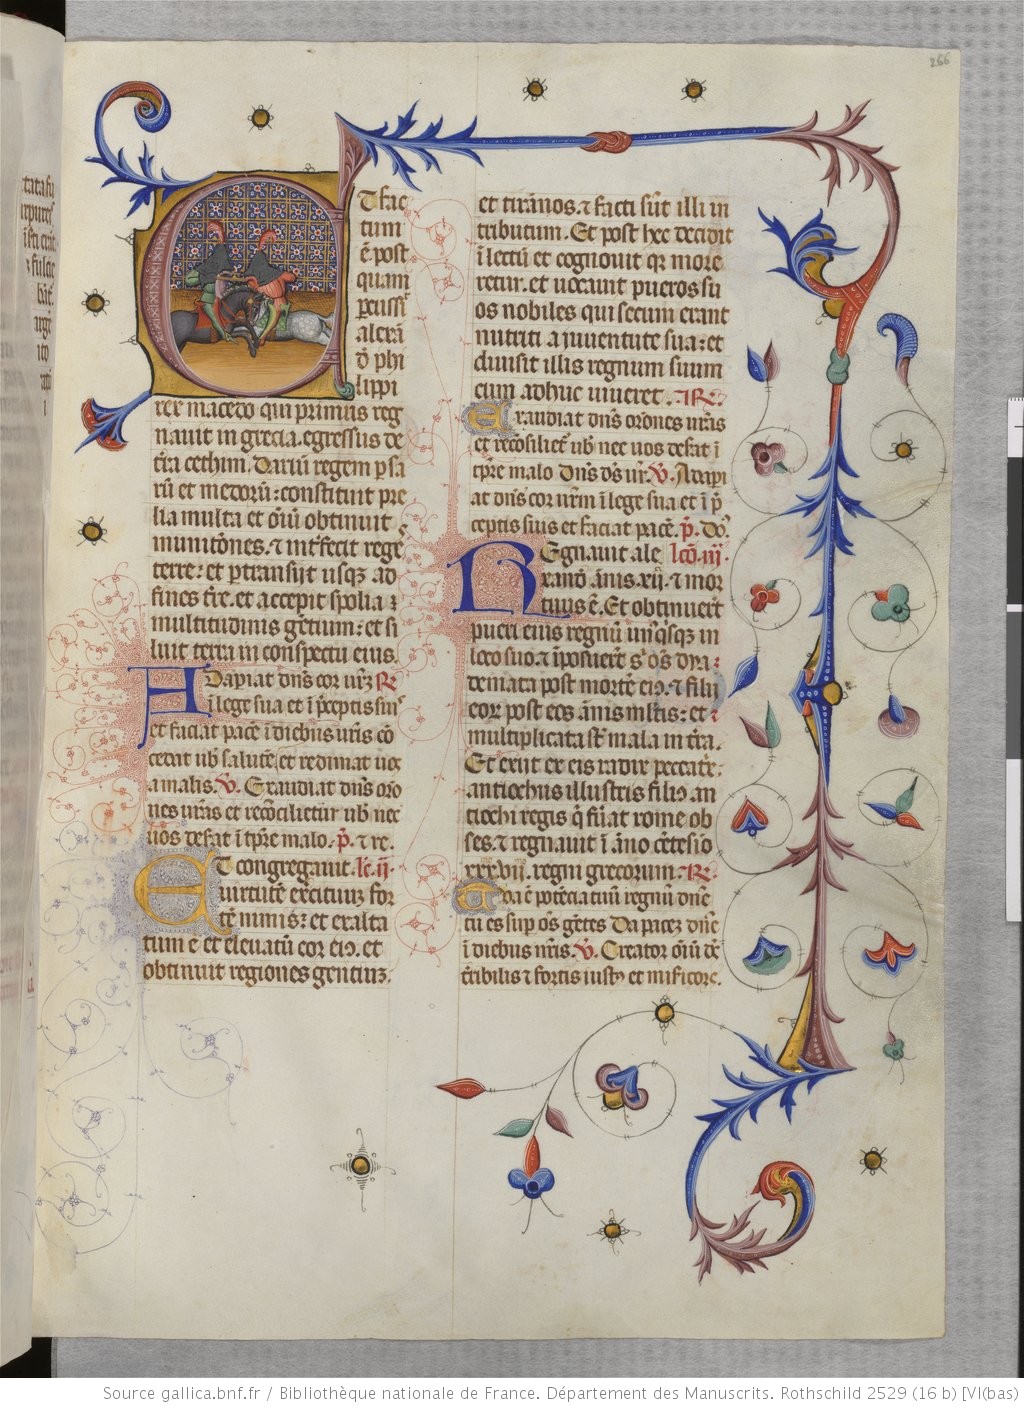 266
Et fac
tum
ē post
quam
ꝑcussꝰ
alexā
đ phi
lippi
rex macedo qui primus reg
nauit in grecia. egressus de
t̄ra cethim. Dariū regem ꝑsa
rū et medorū: constituit pre
lia multa et oīū obtinuit
munitōnes. ⁊ int̄fecit regeˢ
terre: et ꝑtransijt usqꝫ ad
fines t̄re. et accepit spolia
multitudinis gētium: et si
luit terra in conspectu eius.
Adapiat dn̄s cor ur̄ꝫ R̷
ī lege sua et ī p̄ceptis suis
et faciat pacē ī diebus ur̄is cō
cedat ub̄ salutē et redimat uos
a malis. V̷. Exaudiat dn̄s orō
nes ur̄as et recōcilietur ub̄ nec
uos desat ī tp̄re malo. p̄. ⁊ re.
Et congregauit. lc̄. ij.
uirtutē exercituꝫ for
tē nimis: et exalta
tum ē et eleuatū cor eiꝰ. et
obtinuit regiones gentiuꝫ.
et tirānos. ⁊ facti sūt illi in
tributum. Et post hec decidit
ī lectū et cognouit qꝛ more
retur. et uocauit pueros su
os nobiles qui secum erant
nutriti a iuuentute sua: et
diuisit illis regnum suum
cum adhuc uiueret. R̷.
Exaudiat dn̄s ordones ur̄as
et recōsiliet̄ ub̄ nec uos desat ī
tp̄re malo dn̄s ds̄ ur̄. V̷. Adapi
at dn̄s cor ur̄m ī lege sua et ī p̄
ceptis suis et faciat pacē. p̄. Dō.
Regnauit ale lcō. iij.
xandꝰ ānis. xij. ⁊ mor
tuus ē. Et obtinuer̄t
pueri eius regnū unꝰqsqꝫ in
loco suo. ⁊ īposuer̄t sꝰ oˢ dya
demata post mortē eiꝰ. ⁊ filij
eoꝝ post eos ānis ml̄tis: et
multiplicata st̄ mala in t̄ra.
Et exiit ex eis radix peccat̄x:
antiochus illustris filiꝰ an
tiochi regis q̇ fu̇at rome ob
ses. ⁊ regnauit ī āno cētesīo
xxxvij. regni grecorum. R̷.
Tua ē potēcia tuū regnū dn̄e
tu es suꝑ oˢ gētes Da pacē dn̄e
ī diebus nr̄is. V̷. Creator oīū đˢ
t̄ribilis ⁊ fortis iustꝰ et mis̄icors.
Source gallica.bnf.fr / Bibliothèque nationale de France. Département des Manuscrits. Rothschild 2529 (16 b) [VI(bas)